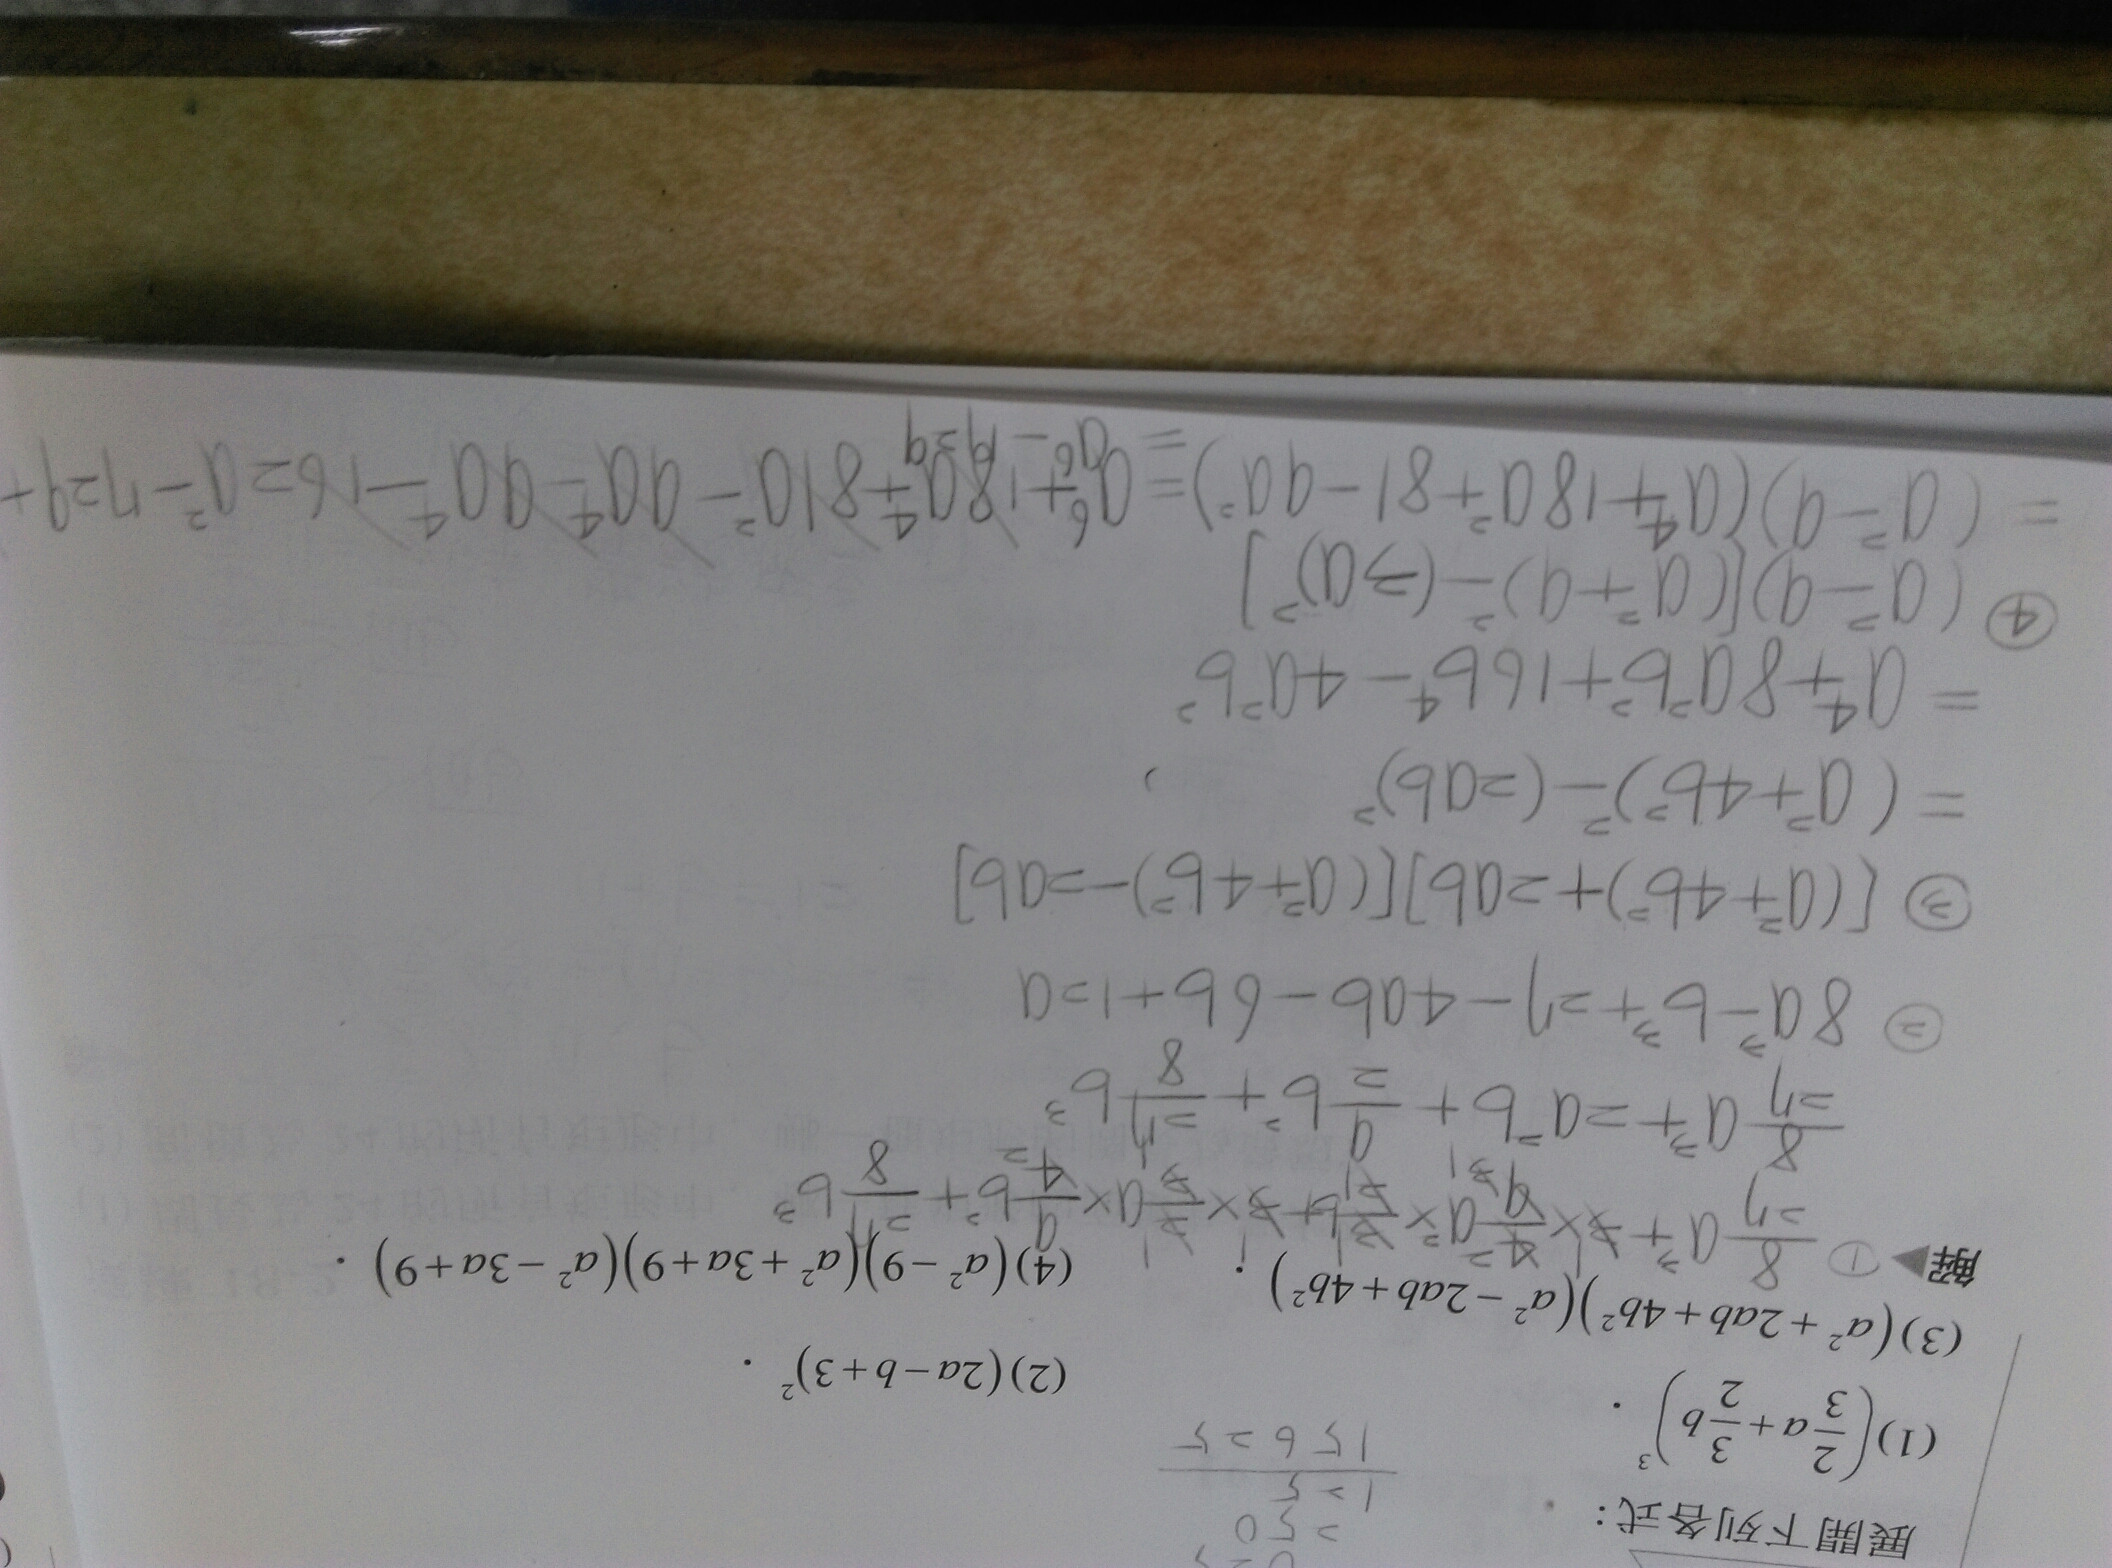 0 2 5
2 5 0
1 2 5
1 5 6 2 5
展開下列各式：
(1) (2/3 a + 3/2 b)³．
(2) (2a − b + 3)²．
(3) (a² + 2ab + 4b²)(a² − 2ab + 4b²)．
(4) (a² − 9)(a² + 3a + 9)(a² − 3a + 9)．
解▶ ① 8/27 a³ + 3 × 4/9 a² × 3/2 b + 3 × 2/3 a × 9/4 b² + 27/8 b³
8/27 a³ + 2a²b + 9/2 b² + 27/8 b³
② 8a³ − b³ + 27 − 4ab − 6b + 12a
③ [(a² + 4b²) + 2ab][(a² + 4b²) − 2ab]
= (a² + 4b²)² − (2ab)²
= a⁴ + 8a²b² + 16b⁴ − 4a²b²
④ (a² − 9)[(a² + 9)² − (3a)²]
= (a² − 9)(a⁴ + 18a² + 81 − 9a²) = a⁶ + 18a⁴ + 81a² − 9a⁴ − 9a⁴ − 162a² − 729 +
= a⁶ −